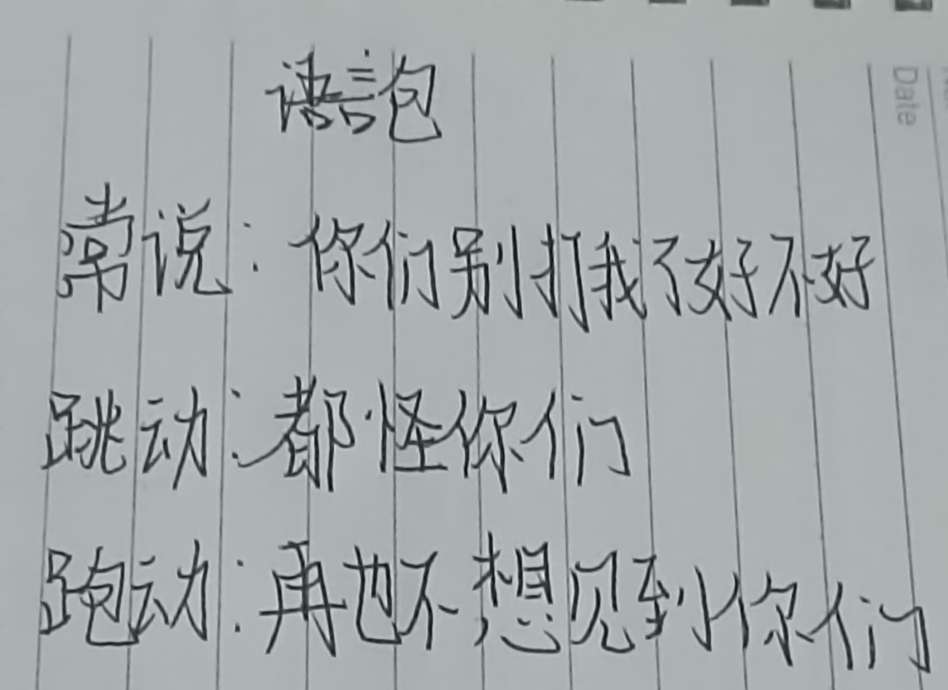 Date
语言包
常说:你们别打我了好不好
跳动:都怪你们
跑动:再也不想见到你们